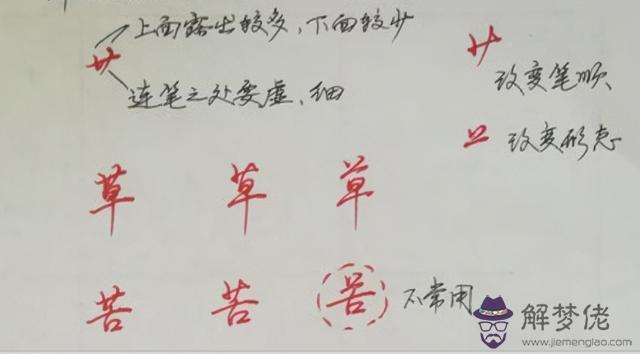 上面露出较多,下面较少
艹
连笔之处要虚、细
改变笔顺
改变形态
草 草 草
苦 苦 苦 不常用
解梦佬
www.jiemenglao.com